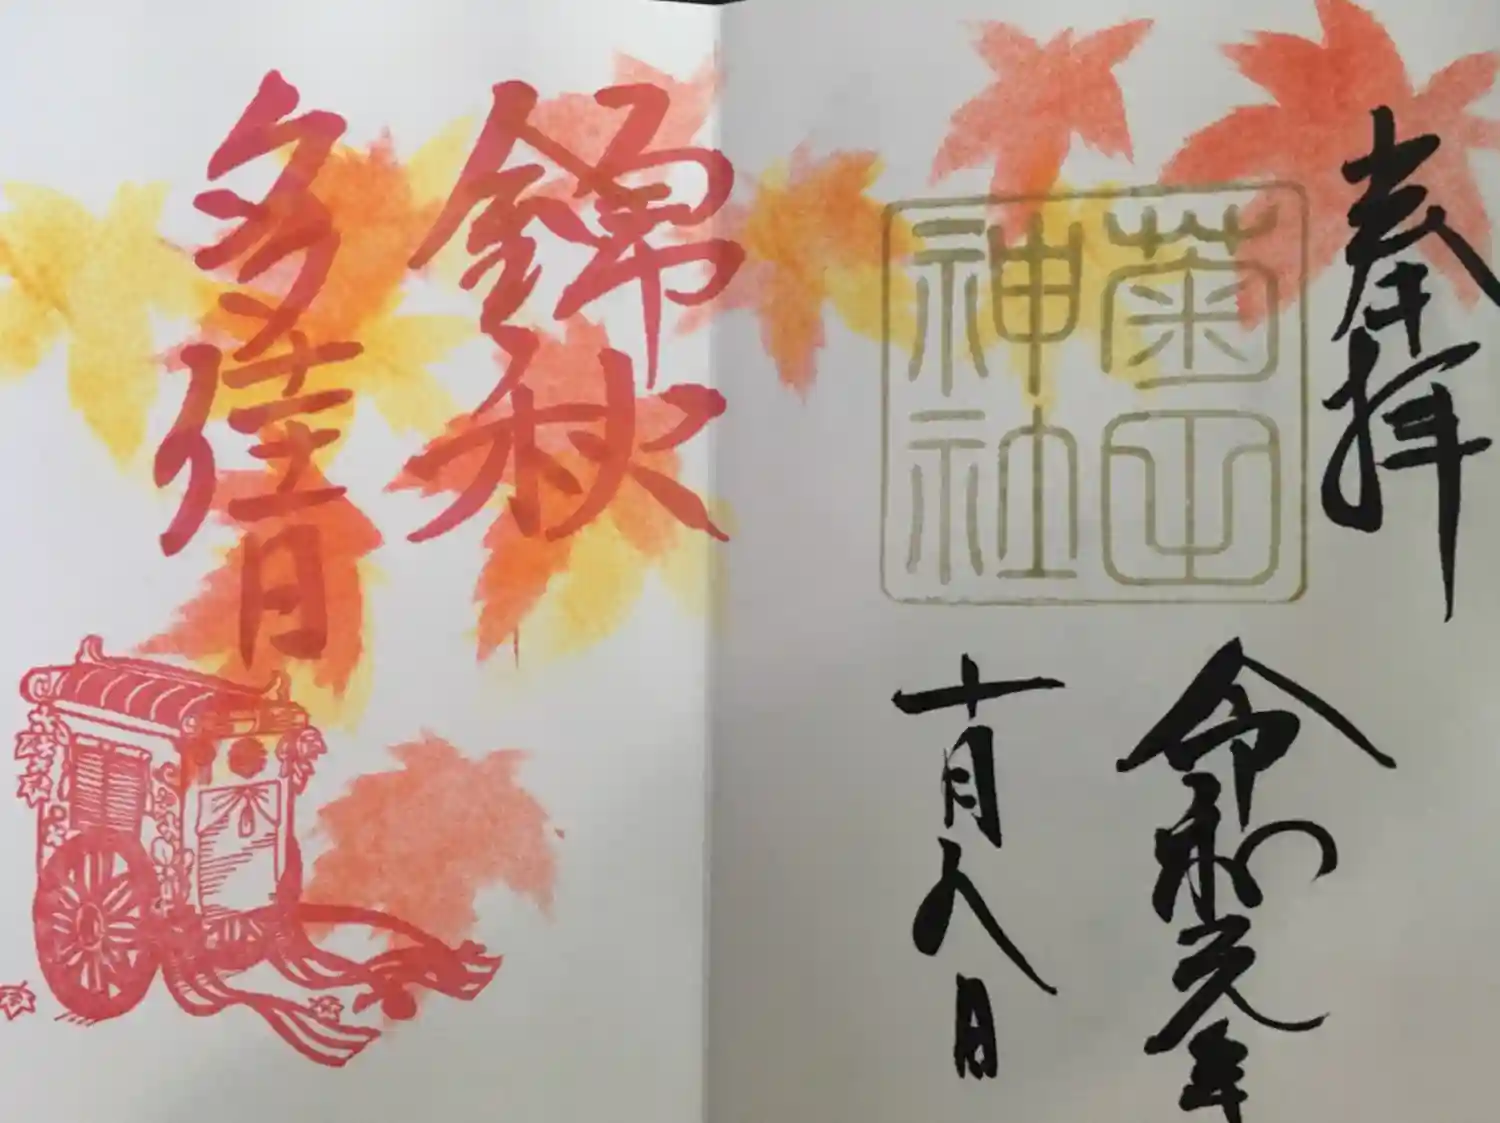 奉拝
菊田
神社
令和元年
十月八日
錦秋
多佳日